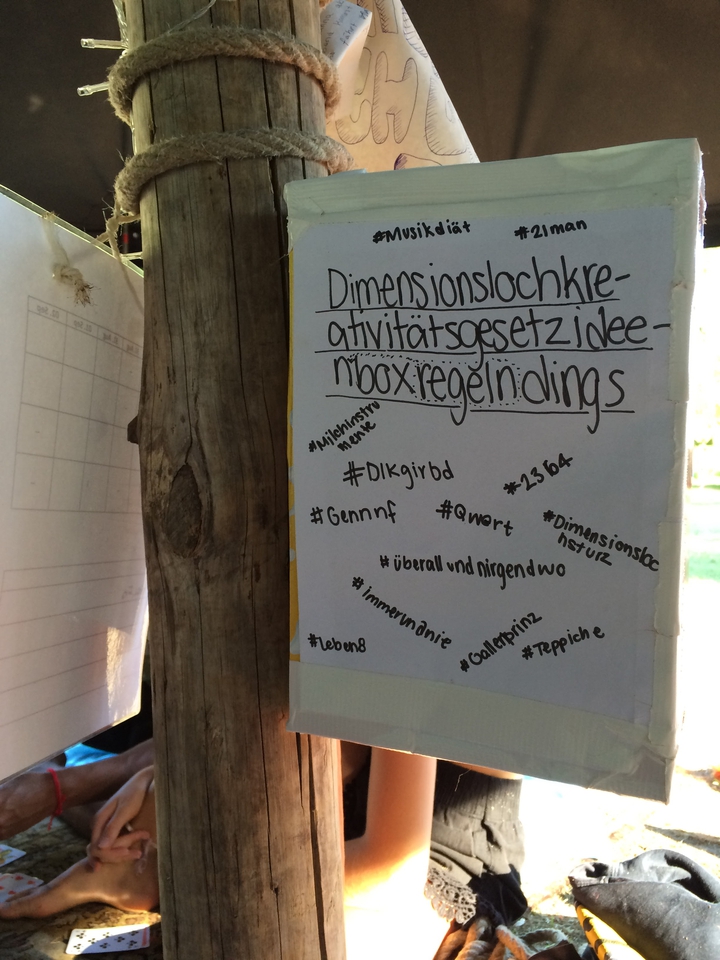 #Musikdiät #21man
Dimensionslochkre-
ativitätsgesetzidee-
nboxregelndings
#Milchinstru
mente
#Dlkgirbd #23b4
#Gennnf #Qwort #Dimensionsloc
hsturz
#überall und nirgendwo
#immerundnie
#Leben8 #Gallertprinz #Teppiche